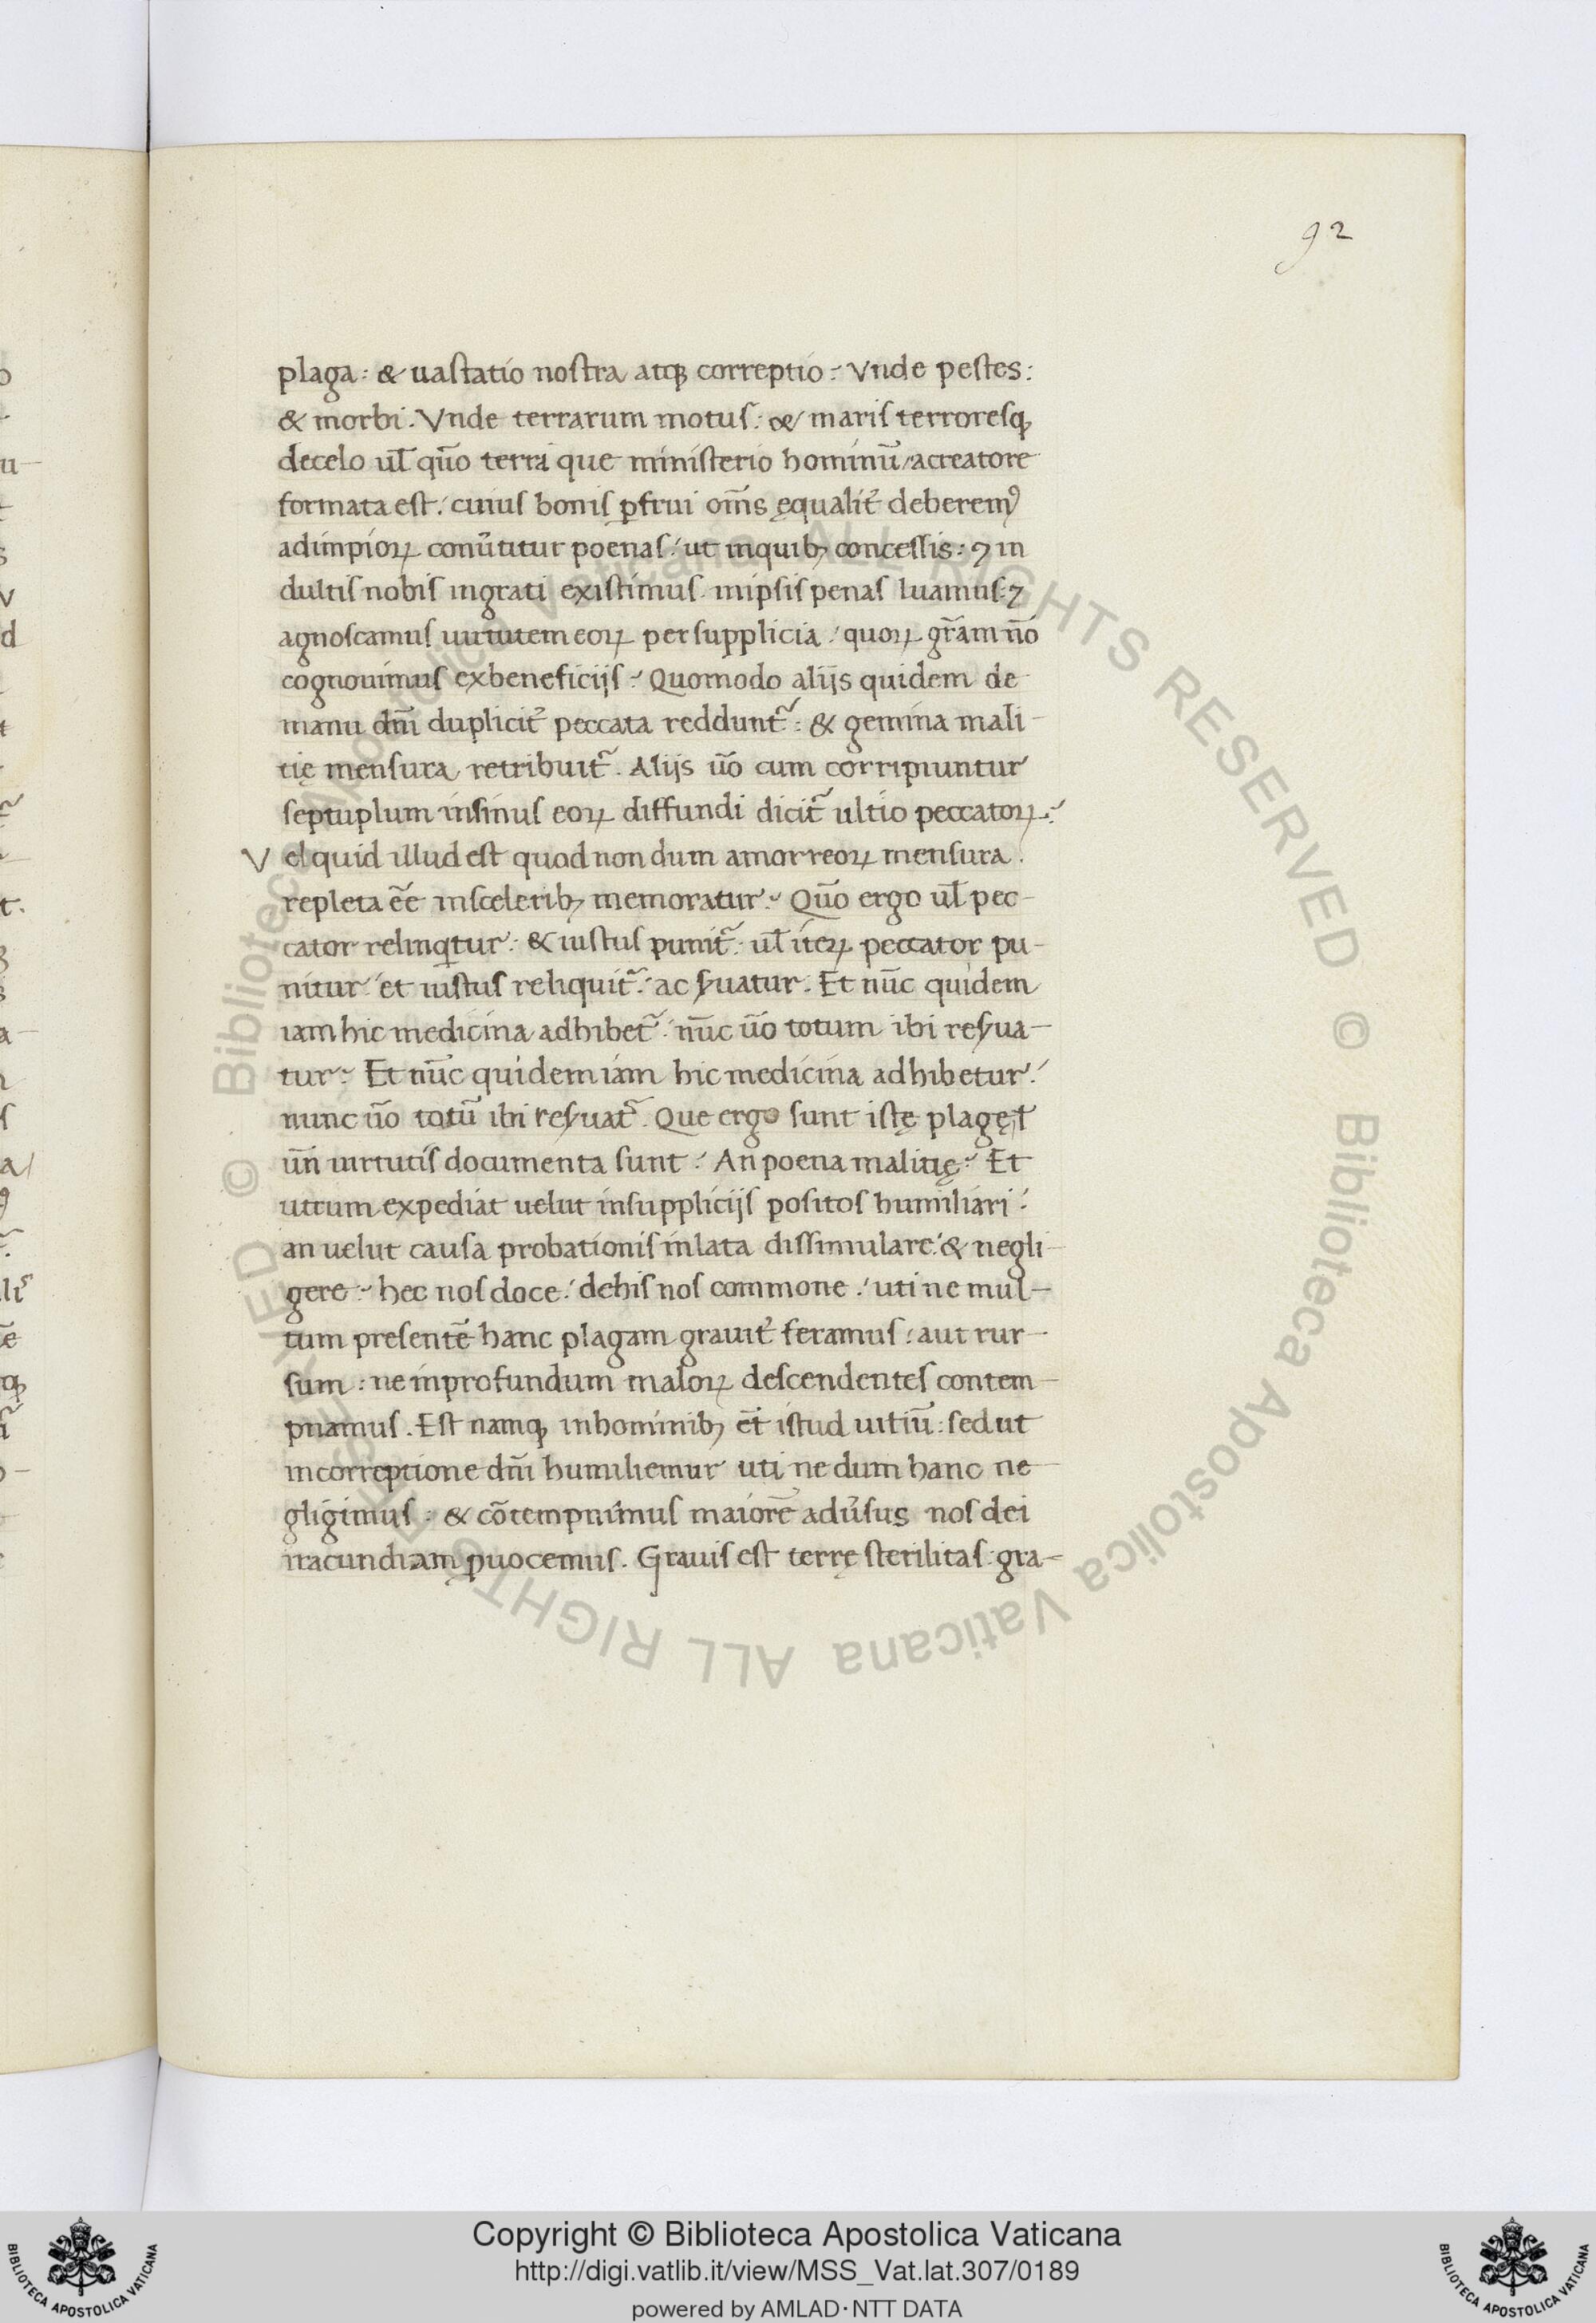 92
plaga: & uastatio nostra atqꝫ correptio. Vnde pestes:
& morbi. Vnde terrarum motus: & maris terroresqꝫ
decelo ul̄ quō terra que ministerio hominū / acreatore
formata est. cuius bonis ꝑfrui om̄s ęqualit̉ deberemꝰ
adimpioꝝ conū̉titur poenas. ut inquibꝫ concessis: ⁊ in
dultis nobis ingrati existimus. inipsis penas luamus: ⁊
agnoscamus uirtutem eoꝝ per supplicia. quoꝝ gr̄am nō
cognouimus exbeneficijs. Quomodo alijs quidem de
manu dn̄i duplicit̉ peccata reddunt᷑: & gemina mali–
tię mensura retribuit᷑. Alijs ūo cum corripiuntur
septuplum insinus eoꝝ diffundi dicit᷑ ultio peccatoꝝ.
Vel quid illud est quod non dum amorreoꝝ mensura.
repleta ēē insceleribꝫ memoratur. Quō ergo ul̄ pec–
cator relinqⁱtur: & iustus punit᷑: ul̄ iteꝝ peccator pu–
nitur et iustus reliquit᷑. ac ẜuatur. Et nūc quidem
iam hic medicina adhibet᷑. nūc ūo totum ibi reẜua–
tur. Et nūc quidem iam hic medicina adhibetur.
nunc ūo totū ibi reẜuat᷑. Que ergo sunt istę plagę ł
ūn uirtutis documenta sunt. An poena malitię. Et
utrum expediat uelut insupplicijs positos humiliari.
an uelut causa probationis inlata dissimulare. & negli–
gere. hec nos doce. dehis nos commone. uti ne mul–
tum presentē hanc plagam grauit̉ feramus: aut rur–
sum: ne inprofundum maloꝝ descendentes contem–
pnamus. Est namqꝫ inhominibꝫ et̄ istud uitiū: sed ut
incorreptione dn̄i humiliemur uti ne dum hanc ne–
gligimus: & cōtempnimus maiorē adủsus nos dei
iracundiam ꝓuocemus. Grauis est terrę sterilitas: gra–
© Biblioteca Apostolica Vaticana ALL RIGHTS RESERVED © Biblioteca Apostolica Vaticana ALL RIGHTS RESERVED
Copyright © Biblioteca Apostolica Vaticana
http://digi.vatlib.it/view/MSS_Vat.lat.307/0189
powered by AMLAD·NTT DATA
BIBLIOTECA APOSTOLICA VATICANA
BIBLIOTECA APOSTOLICA VATICANA